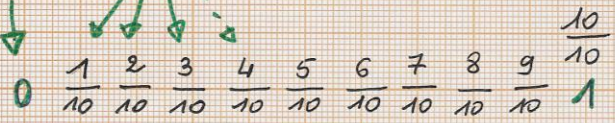 10/10
0 1/10 2/10 3/10 4/10 5/10 6/10 7/10 8/10 9/10 1